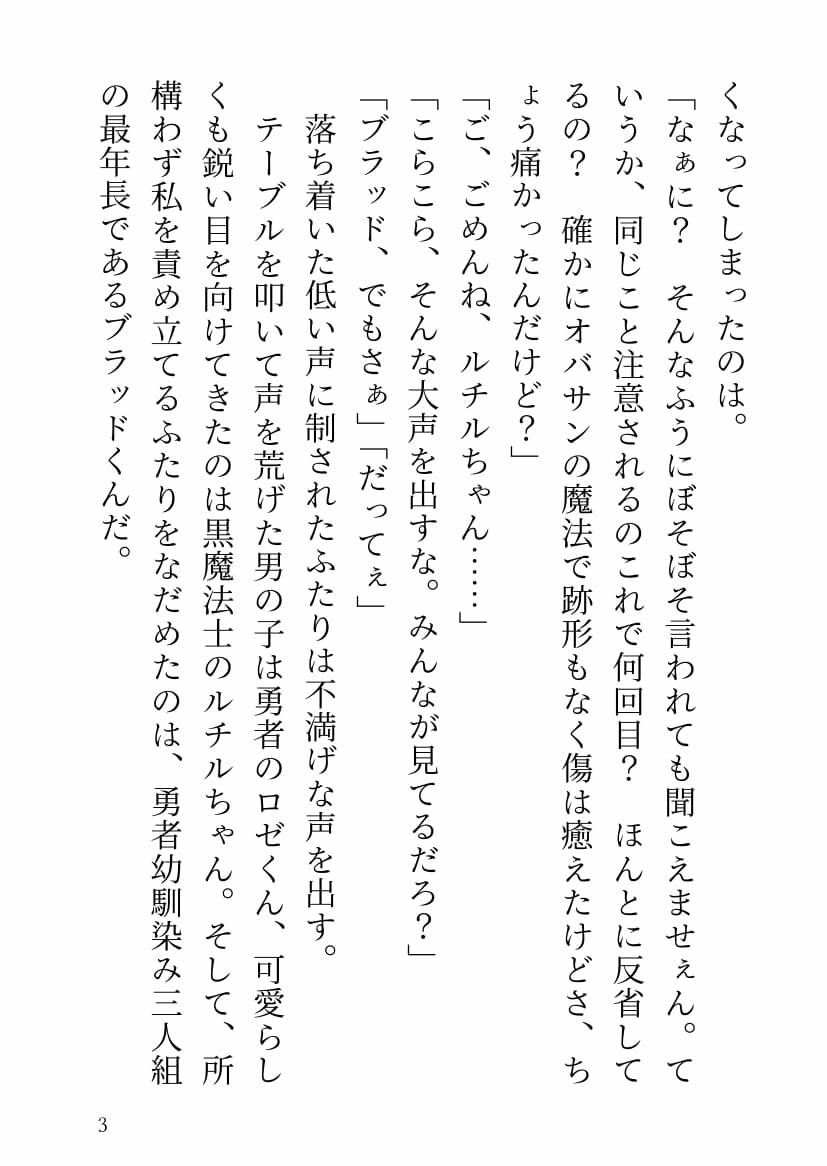 くなってしまったのは。
「なぁに？　そんなふうにぼそぼそ言われても聞こえませぇん。て
いうか、同じこと注意されるのこれで何回目？　ほんとに反省して
るの？　確かにオバサンの魔法で跡形もなく傷は癒えたけどさ、ち
ょう痛かったんだけど？」
「ご、ごめんね、ルチルちゃん……」
「こらこら、そんな大声を出すな。みんなが見てるだろ？」
「ブラッド、でもさぁ」「だってぇ」
　落ち着いた低い声に制されたふたりは不満げな声を出す。
　テーブルを叩いて声を荒げた男の子は勇者のロゼくん、可愛らし
くも鋭い目を向けてきたのは黒魔法士のルチルちゃん。そして、所
構わず私を責め立てるふたりをなだめたのは、勇者幼馴染み三人組
の最年長であるブラッドくんだ。
3